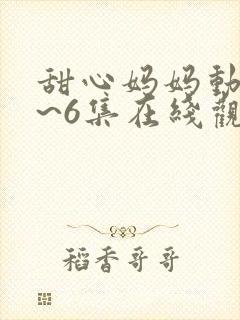 甜心妈妈動
~6集在綫觀
稻香哥哥